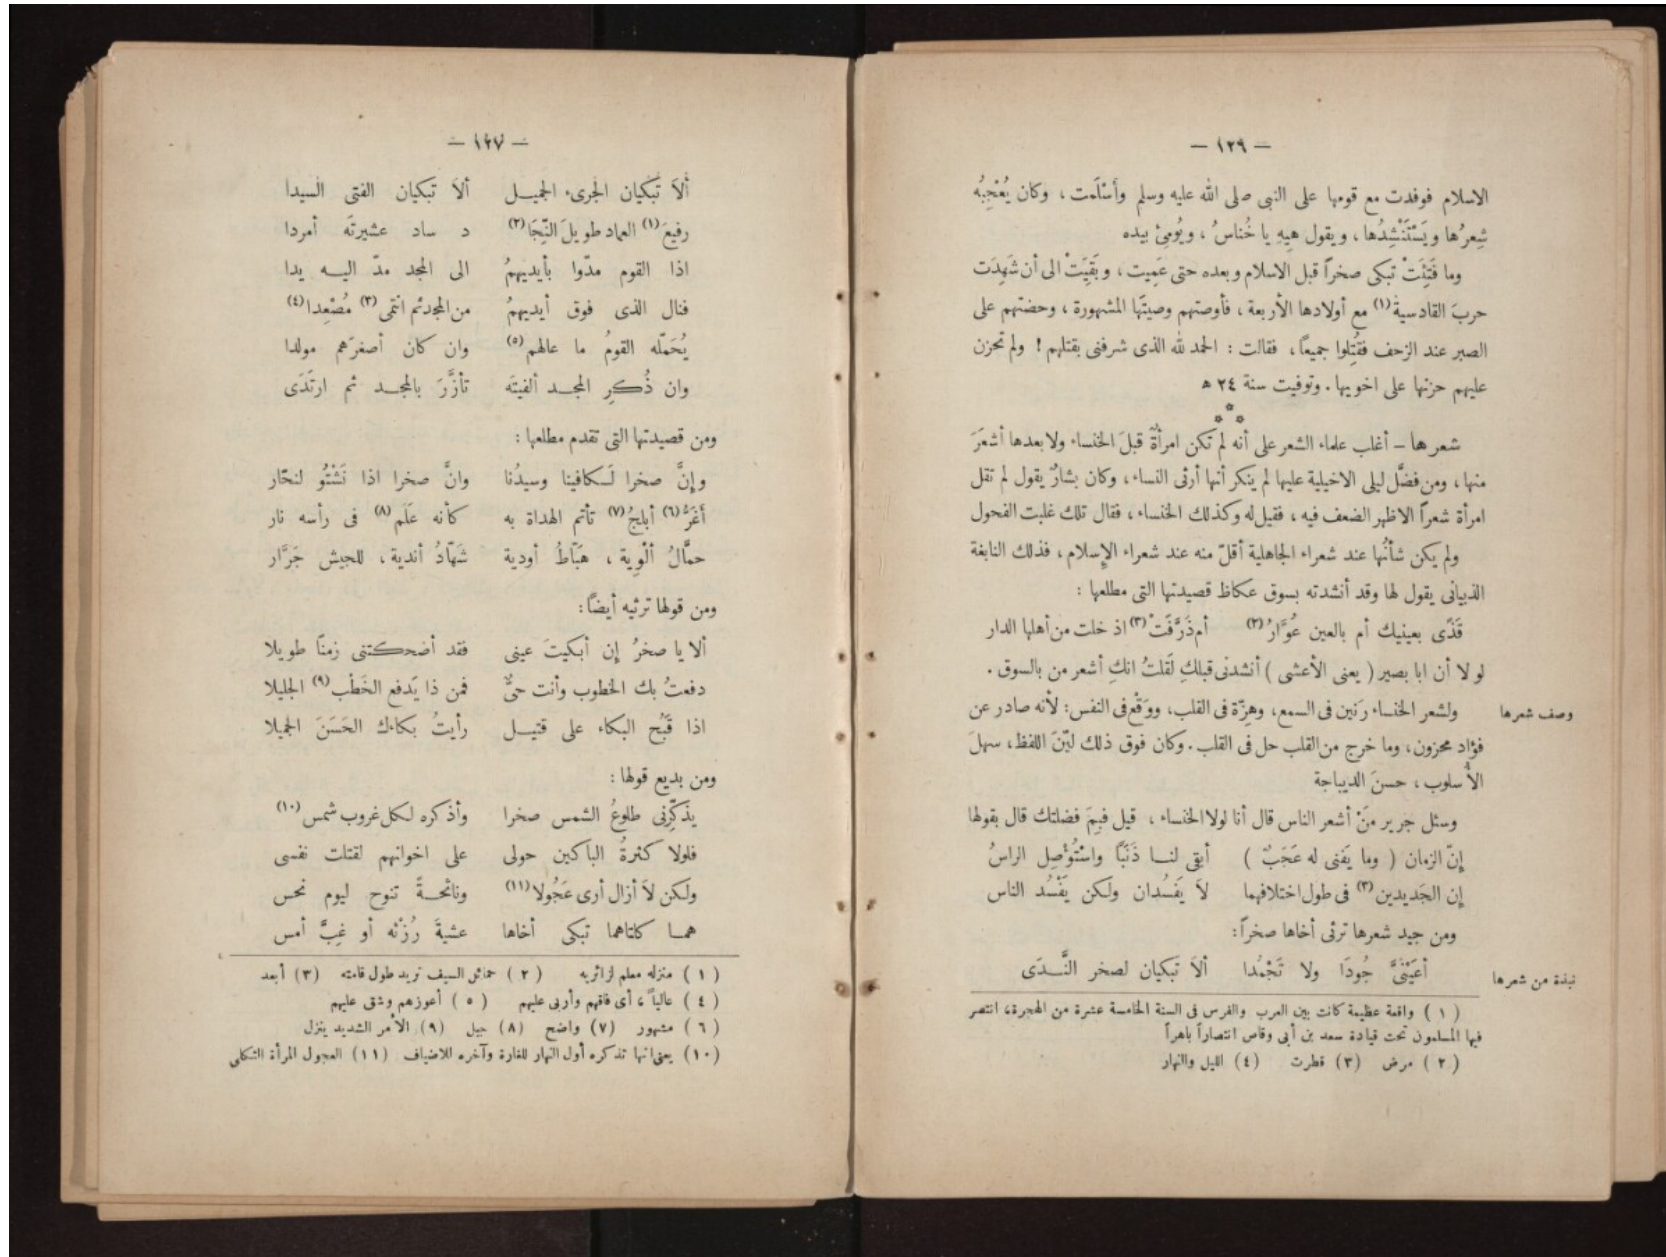 — ١٢٩ —
الاسلام فوفدت مع قومها على النبى صلى الله عليه وسلم وأَسْلَمت ، وكان يُعْجِبُه
شِعرُها ويَسْتَنْشِدُها ، ويقول هِيهِ يا خُناسُ ، ويُومِئ بيده
وما فَتِئَتْ تبكى صخراً قبل الاسلام وبعده حتى عَمِيت ، وبَقِيَتْ الى أن شَهِدَت
حربَ القادسية (١) مع أولادها الأربعة ، فأوصتهم وصيتَها المشهورة ، وحضتهم على
الصبر عند الزحف فقُتِلوا جميعاً ، فقالت : الحمد لله الذى شرفنى بقتلهم ! ولم تحزن
عليهم حزنها على اخويها . وتوفيت سنة ٢٤ ه
* * *
شعرها — أغلب علماء الشعر على أنه لم تكن امرأةٌ قبلَ الخنساء ولا بعدها أشعرَ
منها ، ومن فضَّل ليلى الاخيلية عليها لم ينكر أنها أرثى النساء ، وكان بشارٌ يقول لم تقل
امرأة شعراً الا ظهر الضعف فيه ، فقيل له وكذلك الخنساء ، فقال تلك غلبت الفحول
ولم يكن شأنُها عند شعراء الجاهلية أقلّ منه عند شعراء الإسلام ، فذلك النابغة
الذبيانى يقول لها وقد أنشدته بسوق عكاظ قصيدتها التى مطلعها :
قَذًى بعينيك أم بالعين عُوَّارُ (٢) أم ذَرَّفَتْ (٣) اذ خلت من أهلها الدار
لو لا أن ابا بصير ( يعنى الأعشى ) أنشدنى قبلكِ لَقلتُ انكِ أشعر من بالسوق .
وصف شعرها
ولشعر الخنساء رَنين فى السمع، وهِزّة فى القلب، ووَقْع فى النفس: لأنه صادر عن
فؤاد محزون، وما خرج من القلب حل فى القلب . وكان فوق ذلك ليّنَ اللفظ، سهلَ
الأسلوب ، حسنَ الديباجة
وسئل جرير مَنْ أشعر الناس قال أنا لولا الخنساء ، قيل فبِمَ فضلتك قال بقولها
إنّ الزمان ( وما يَفنى له عَجَبٌ ) أبقى لنا ذَنَباً واستُؤْصِل الراسُ
إن الجَديدين (٣) فى طول اختلافهما لاَ يَفسُدان ولكن يَفْسُد الناس
ومن جيد شعرها ترثى أخاها صخراً:
نبذة من شعرها
أعَيْنَىَّ جُودَا ولا تَجْمُدا ألاَ تَبكيان لصخر النَّدَى
( ١ ) واقعة عظيمة كانت بين العرب والفرس فى السنة الخامسة عشرة من الهجرة، انتصر
فيها المسلمون تحت قيادة سعد بن أبى وقاص انتصاراً باهراً
( ٢ ) مرض (٣) قطرت (٤) الليل والنهار
— ١٢٧ —
ألاَ تَبكيان الجرىء الجميل ألاَ تَبكيان الفتى السيدا
رفيعَ (١) العماد طويلَ النِّجَا (٢) د ساد عشيرتَه أمردا
اذا القوم مدّوا بأيديهمُ الى المجد مدّ اليه يدا
فنال الذى فوق أيديهمُ من المجد ثم انتمى (٣) مُصْعِدا (٤)
يُحَمّله القومُ ما عالهم (٥) وان كان أصغرَهم مولدا
وان ذُكِرِ المجد ألفيتَه تأزَّرَ بالمجد ثم ارتَدَى
ومن قصيدتها التى تقدم مطلعها :
وإنَّ صخرا لَكافينا وسيدُنا وانَّ صخرا اذا نَشْتُو لنحّار
أغَرُّ (٦) أبلجُ (٧) تأتم الهداة به كأنه عَلَم (٨) فى رأسه نار
حمَّالُ ألْوِية ، هَبّاطُ أودية شَهّادُ أندية ، للجيش جَرَّار
ومن قولها ترثيه أيضاً :
ألا يا صخرُ إن أبكيتَ عينى فقد أضحكتنى زمنًا طويلا
دفعتُ بك الخطوب وأنت حىٌّ فمن ذا يَدفع الخَطْب (٩) الجليلا
اذا قَبُح البكاء على قتيل رأيتُ بكاءك الحَسَنَ الجميلا
ومن بديع قولها :
يذكّرنى طلوعُ الشمس صخرا وأذكره لكل غروب شمس (١٠)
فلولا كثرةُ الباكين حولى على اخوانهم لقتلت نفسى
ولكن لاَ أزال أرى عَجُولا (١١) ونائحةً تنوح ليوم نحس
هما كلتاهما تبكى أخاها عشيةَ رُزْئه أو غِبَّ أمس
( ١ ) منزله معلم لزائريه ( ٢ ) حمائل السيف تريد طول قامته (٣) أبعد
( ٤ ) عالياً ، أى فاقهم وأربى عليهم ( ٥ ) أعوزهم وشق عليهم
( ٦ ) مشهور (٧) واضح (٨) جبل (٩) الأمر الشديد ينزل
(١٠) يعنى انها تذكره أول النهار للغارة وآخره للاضياف (١١) العجول المرأة الثكلى